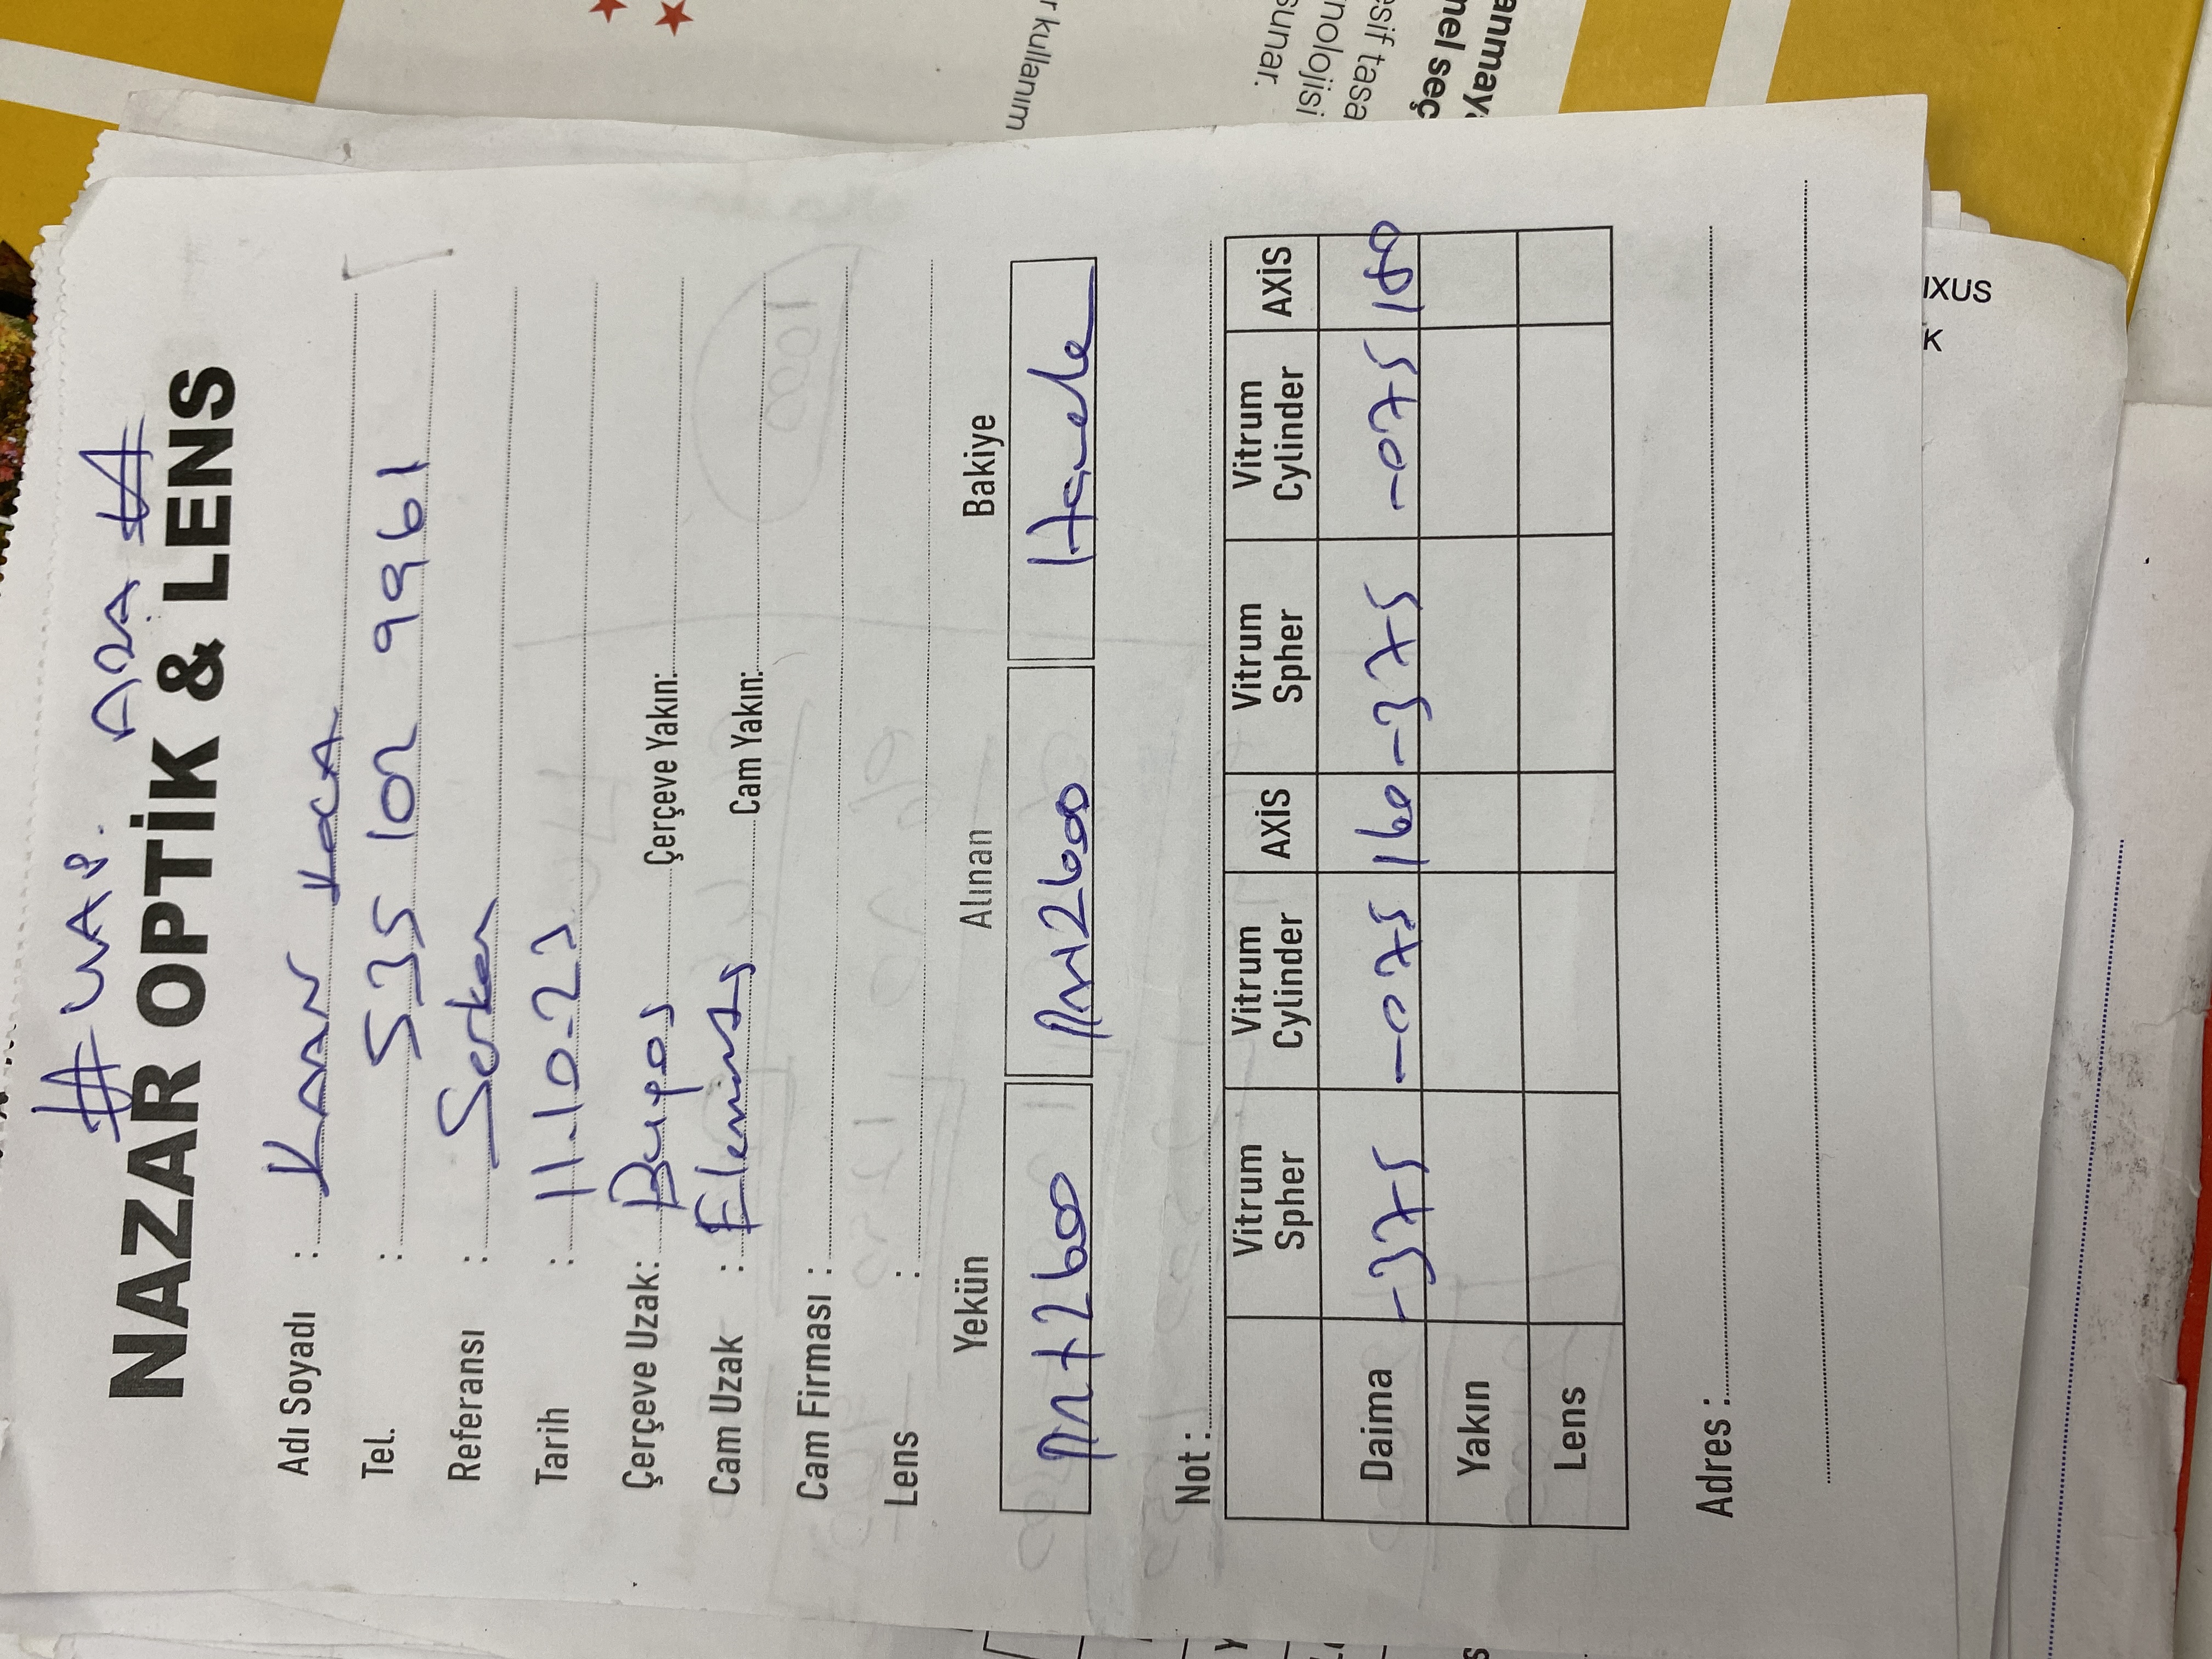 # UAP. ARA #
NAZAR OPTİK & LENS
Adı Soyadı : KAAN KOCA
Tel. : 535 102 9961
Referansı : Serkan
Tarih : 11.10.23
Çerçeve Uzak: Çerçeve Yakın:
Cam Uzak : Cam Yakın:
Cam Firması :
Lens :
Yekün Alınan Bakiye
+2600 2600 Havale
Not :
Vitrum Spher Vitrum Cylinder AXİS Vitrum Spher Vitrum Cylinder AXİS
Daima -375 -075 160 -375 -075 180
Yakın
Lens
Adres :
r kullanım
sunar.
nolojisi
esif tasa
nel seç
anmaya
IXUS
K